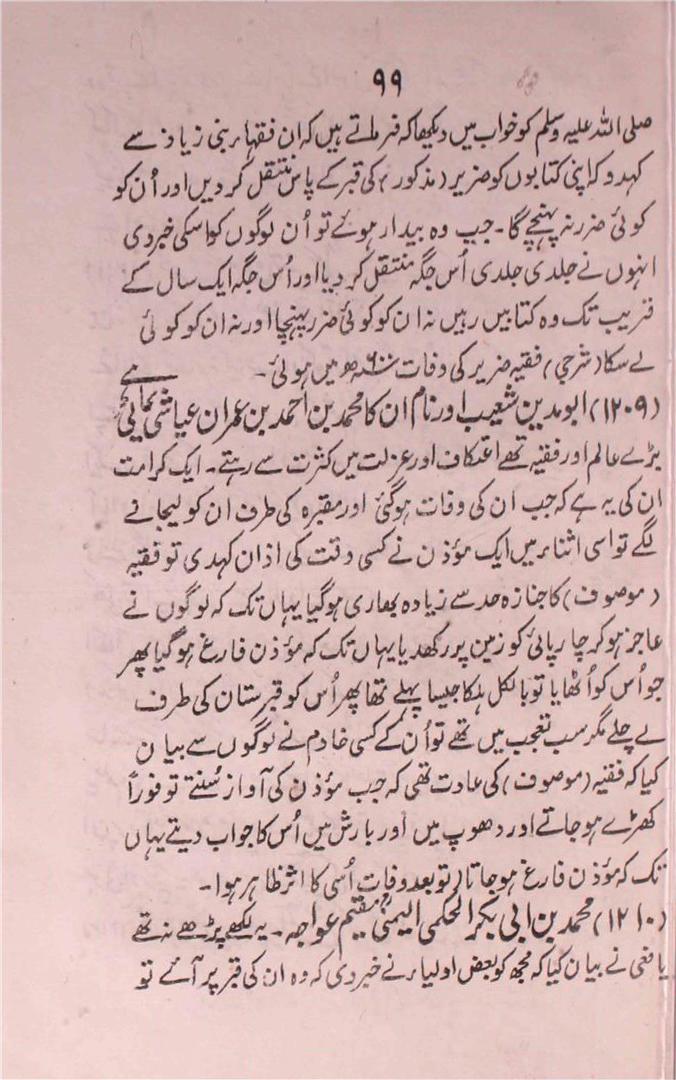 ۹۹
صلی اللہ علیہ وسلم کو خواب میں دیکھا کہ فرماتے ہیں کہ ان فقہاء بنی زیاد سے
کہدو کہ اپنی کتابوں کو ضریر (مذکور) کی قبر کے پاس منتقل کر دیں اور اُن کو
کوئی ضرر نہ پہنچے گا۔ جب وہ بیدار ہوئے تو اُن لوگوں کو اسکی خبر دی
انہوں نے جلدی جلدی اُس جگہ منتقل کر دیا اور اُس جگہ ایک سال کے
قریب تک وہ کتابیں رہیں نہ ان کو کوئی ضرر پہنچا اور نہ ان کو کوئی
لے سکا (شرجی) فقیہ ضریر کی وفات میں ہوئی۔
(۱۲۰۹) ابو مدین شعیب اور نام ان کا محمد بن احمد بن عمران عیاشی
بڑے عالم اور فقیہ تھے اعتکاف اور عزلت میں کثرت سے رہتے۔ ایک کرامت
ان کی یہ ہے کہ جب ان کی وفات ہو گئی اور مقبرہ کی طرف ان کو لیجانے
لگے تو اسی اثناء میں ایک مؤذن نے کسی وقت کی اذان کہدی تو فقیہ
(موصوف) کا جنازہ حد سے زیادہ بھاری ہو گیا یہاں تک کہ لوگوں نے
عاجز ہو کر چارپائی کو زمین پر رکھدیا یہاں تک کہ مؤذن فارغ ہو گیا پھر
جو اُس کو اُٹھایا تو بالکل ہلکا جیسا پہلے تھا پھر اُس کو قبرستان کی طرف
لے چلے مگر سب تعجب میں تھے تو اُن کے کسی خادم نے لوگوں سے بیان
کیا کہ فقیہ (موصوف) کی عادت تھی کہ جب مؤذن کی آواز سُنتے تو فوراً
کھڑے ہو جاتے اور دھوپ میں اور بارش میں اُس کا جواب دیتے یہاں
تک کہ مؤذن فارغ ہو جاتا) تو بعد وفات اُسی کا اثر ظاہر ہوا۔
(۱۲۱۰) محمد بن ابی بکر الحکمی الیمنی مقیم عواجہ۔ یہ لکھے پڑھے نہ تھے
یافعی نے بیان کیا کہ مجھ کو بعض اولیاء نے خبر دی کہ وہ ان کی قبر پر آئے تو